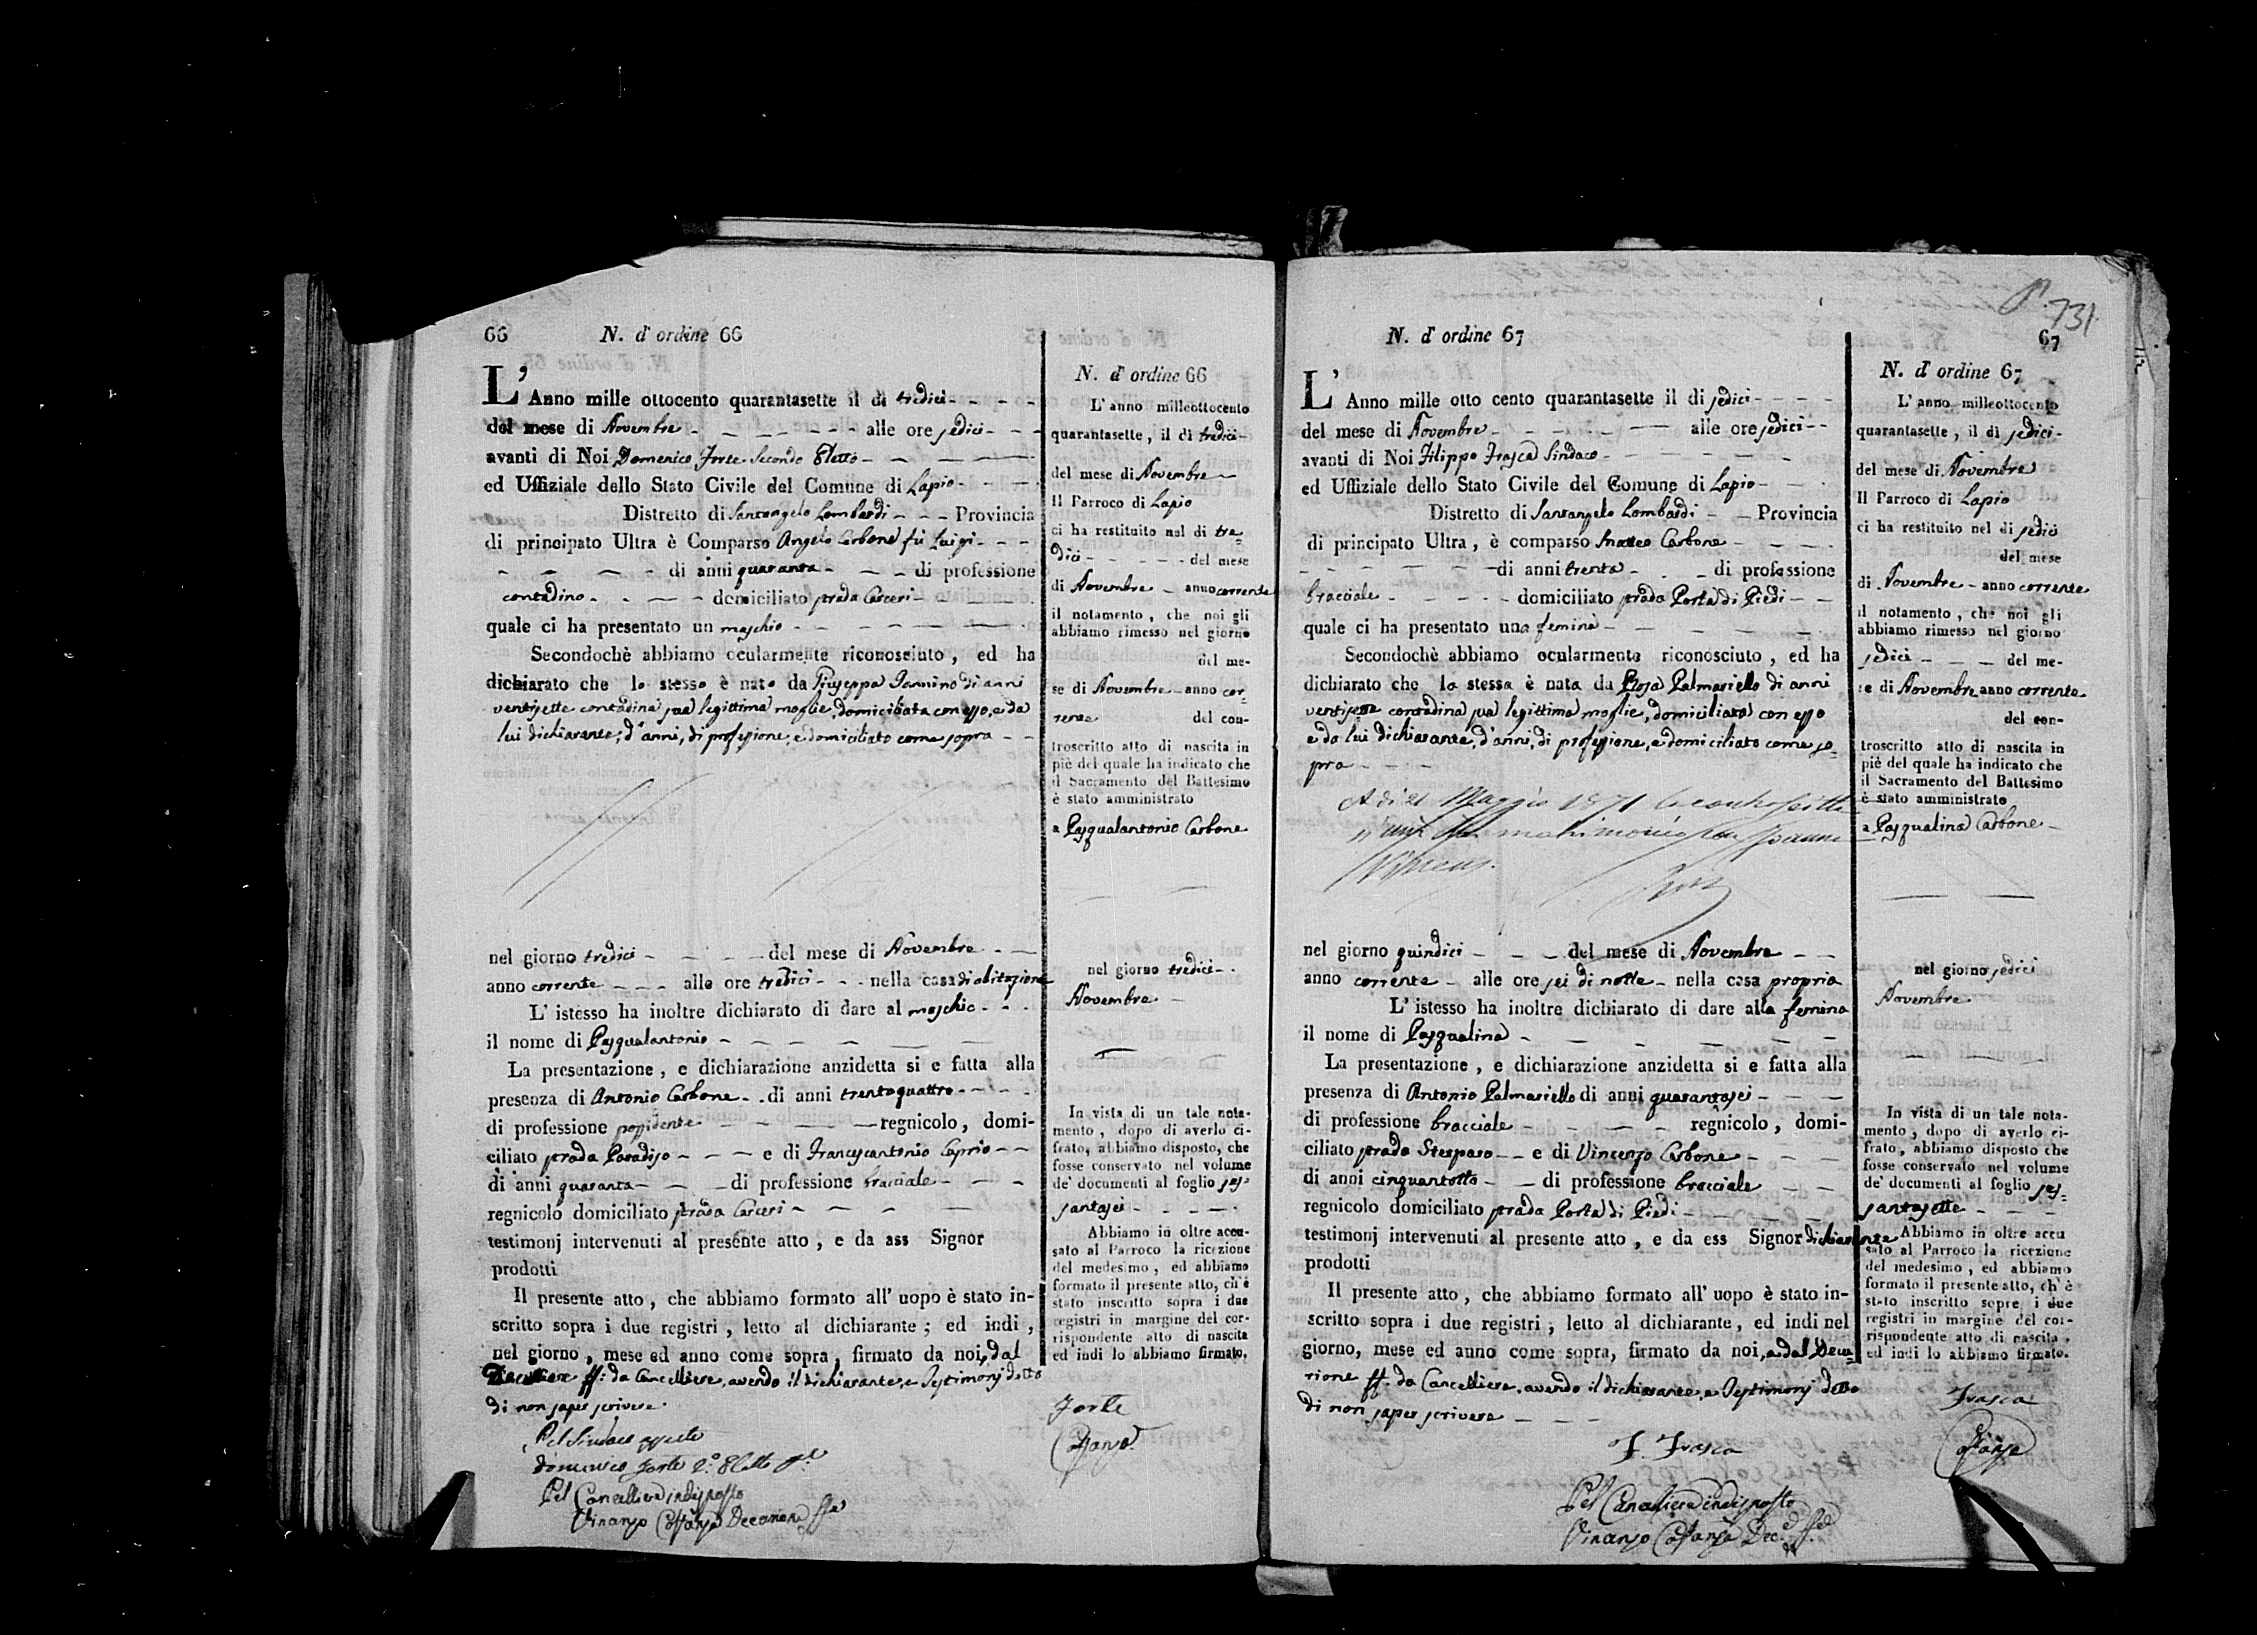 66 N. d' ordine 66
L' Anno mille ottocento quarantasette il di tredici
del mese di Novembre alle ore sedici
avanti di Noi Domenico Forte Secondo Eletto
ed Uffiziale dello Stato Civile del Comune di Lapio
Distretto di Santangelo Lombardi Provincia
di principato Ultra è Comparso Angelo Carbone fù Luigi
di anni quaranta di professione
contadino domiciliato strada Carceri
quale ci ha presentato un maschio
Secondochè abbiamo ocularmente riconosciuto, ed ha
dichiarato che lo stesso è nato da Giuseppa Iannino di anni
ventisette contadina sua legittima moglie, domiciliata con esso, e da
lui dichiarante, d'anni, di professione, e domiciliato come sopra
nel giorno tredici del mese di Novembre
anno corrente alle ore tredici nella casa di abitazione
L' istesso ha inoltre dichiarato di dare al maschio
il nome di Pasqualantonio
La presentazione, e dichiarazione anzidetta si e fatta alla
presenza di Antonio Carbone di anni trentaquattro
di professione possidente regnicolo, domi-
ciliato strada Paradiso e di Francescantonio Caprio
di anni quaranta di professione bracciale
regnicolo domiciliato strada Carceri
testimonj intervenuti al presente atto, e da ass Signor
prodotti
Il presente atto, che abbiamo formato all' uopo è stato in-
scritto sopra i due registri, letto al dichiarante; ed indi,
nel giorno, mese ed anno come sopra, firmato da noi, dal
ff: da Cancelliere, avendo il dichiarante, e Testimonj detto
di non saper scrivere
Pel Sindaco
Domenico Forte 2.º Eletto
Pel Cancelliere indisposto
Vinanzo Costanza
N. d' ordine 66
L' anno milleottocento
quarantasette, il di tredici
del mese di Novembre
Il Parroco di Lapio
ci ha restituito nel di tre=
dici del mese
di Novembre anno corrente
il notamento, che noi gli
abbiamo rimesso nel giorno
del me-
se di Novembre anno cor=
rente del con-
troscritto atto di nascita in
piè del quale ha indicato che
il Sacramento del Battesimo
è stato amministrato
a Pasqualantonio Carbone
nel giorno tredici
Novembre
In vista di un tale nota-
mento, dopo di averlo ci-
frato, abbiamo disposto, che
fosse conservato nel volume
de' documenti al foglio ses=
santasei
Abbiamo in oltre accu-
sato al Parroco la ricezione
del medesimo, ed abbiamo
formato il presente atto, ch'è
stato inscritto sopra i due
registri in margine del cor-
rispondente atto di nascita
ed indi lo abbiamo firmato.
Forte
Costanza
731
N. d' ordine 67 67
L' Anno mille otto cento quarantasette il di sedici
del mese di Novembre alle ore sedici
avanti di Noi Filippo Frasca Sindaco
ed Uffiziale dello Stato Civile del Comune di Lapio
Distretto di Santangelo Lombardi Provincia
di principato Ultra, è comparso Matteo Carbone
di anni trenta di professione
bracciale domiciliato strada Porta di Piedi
quale ci ha presentato una femina
Secondochè abbiamo ocularmente riconosciuto, ed ha
dichiarato che la stessa è nata da Rosa Palmariello di anni
ventisette contadina sua legittima moglie, domiciliata con esso
e da lui dichiarante, d'anni, di professione, e domiciliato come so=
pra
A di 21 Maggio 1871 la controscritta
matrimonio
nel giorno quindici del mese di Novembre
anno corrente alle ore sei di notte nella casa propria
L' istesso ha inoltre dichiarato di dare alla femina
il nome di Pasqualina
La presentazione, e dichiarazione anzidetta si e fatta alla
presenza di Antonio Palmariello di anni quarantasei
di professione bracciale regnicolo, domi-
ciliato strada e di Vincenzo Carbone
di anni cinquantotto di professione bracciale
regnicolo domiciliato strada Porta di Piedi
testimonj intervenuti al presente atto, e da ess Signor dichiarante
prodotti
Il presente atto, che abbiamo formato all' uopo è stato in-
scritto sopra i due registri, letto al dichiarante, ed indi nel
giorno, mese ed anno come sopra, firmato da noi, e dal Decu=
rione ff. da Cancelliere, avendo il dichiarante, e Testimonj detto
di non saper scrivere
F. Frasca
Pel Cancelliere indisposto
Vinanzo Costanza
N. d' ordine 67
L' anno milleottocento
quarantasette, il di sedici
del mese di Novembre
Il Parroco di Lapio
ci ha restituito nel di sedici
del mese
di Novembre anno corrente
il notamento, che noi gli
abbiamo rimesso nel giorno
sedici del me-
se di Novembre anno corrente
del con-
troscritto atto di nascita in
piè del quale ha indicato che
il Sacramento del Battesimo
è stato amministrato
a Pasqualina Carbone
nel giorno sedici
Novembre
In vista di un tale nota-
mento, dopo di averlo ci-
frato, abbiamo disposto che
fosse conservato nel volume
de' documenti al foglio ses=
santasette
Abbiamo in oltre accu
sato al Parroco la ricezione
del medesimo, ed abbiamo
formato il presente atto, ch'è
stato inscritto sopra i due
registri in margine del cor-
rispondente atto di nascita,
ed indi lo abbiamo firmato.
Frasca
Costanza